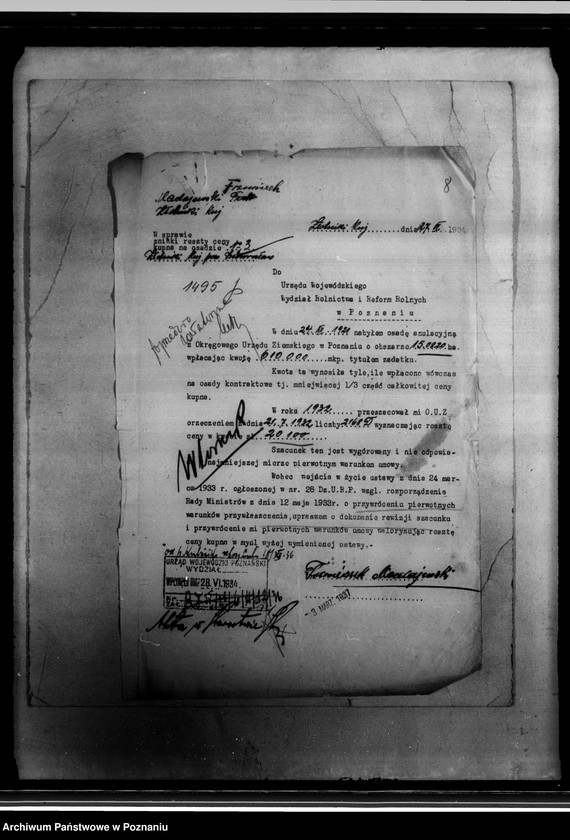 8
Franciszek
dnia 27. VI. 1934
W sprawie
zniżki reszty ceny
kupna na osadzie nr. 3
1495
Do
Urzędu Wojewódzkiego
Wydział Rolnictwa i Reform Rolnych
w Poznaniu
W dniu 22. VI. 1921 nabyłem osadę anulacyjną
z Okręgowego Urzędu Ziemskiego w Poznaniu o obszarze 15.0820 ha.
wpłacając kwotę 610.000 mkp. tytułem zadatku.
Kwota ta wynosiła tyle, ile wpłacono wówczas
na osady kontraktowe tj. mniejwięcej 1/3 część całkowitej ceny
kupna.
W roku 1932 przeszacował mi O.U.Z
orzeczeniem z dnia 21.7.1932 liczby wyznaczając resztę
ceny w kwocie zł. 20.100
Szacunek ten jest wygórowany i nie odpowia-
najmniejszej mierze pierwotnym warunkom umowy.
Wobec wejścia w życie ustawy z dnia 24 mar-
ca 1933 r. ogłoszonej w nr. 28 Dz.U.R.P. wzgl. rozporządzenia
Rady Ministrów z dnia 12 maja 1933r. o przywróceniu pierwotnych
warunków przywłaszczenia, upraszam o dokonanie rewizji szacunku
i przywrócenie mi pierwotnych warunków umowy waloryzując resztę
ceny kupna w myśl wyżej wymienionej ustawy.-
URZĄD WOJEWÓDZKI POZNAŃSKI
WYDZIAŁ
WPŁYNĘŁO DNIA 28. VI. 1934
Nr.
ZAŁ.
Franciszek
-3 MAR. 1937
Akta w
Archiwum Państwowe w Poznaniu